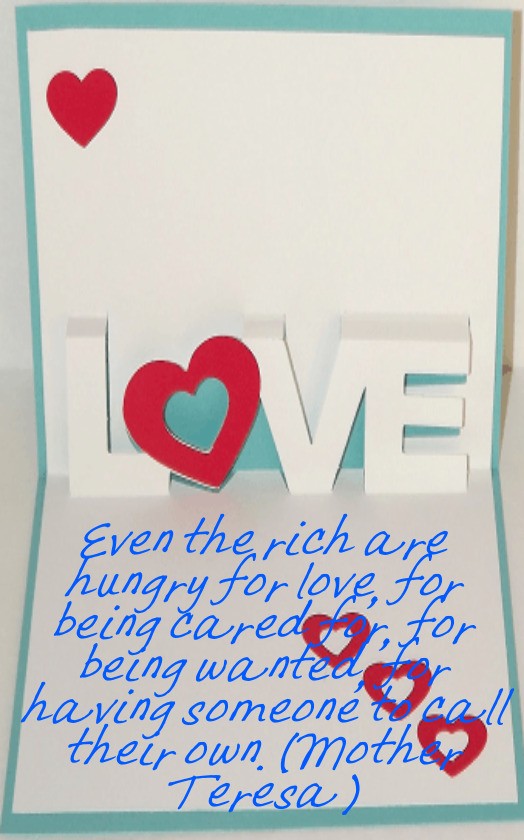 LOVE
Even the rich are
hungry for love, for
being cared for, for
being wanted, for
having someone to call
their own. (Mother
Teresa)